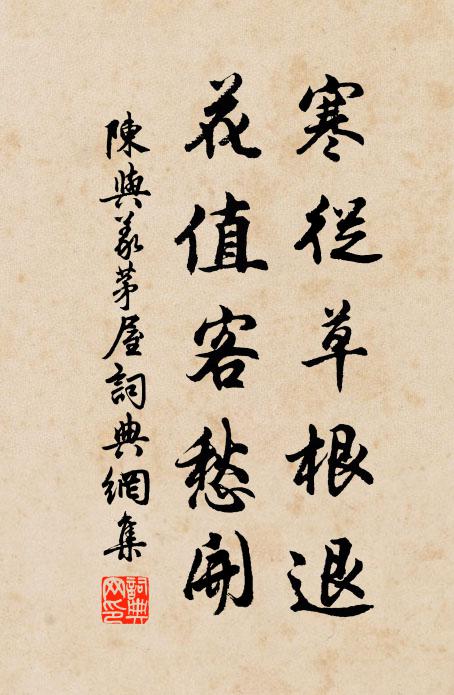 寒從草根退
花值客愁開
陳與義茅屋詞典網集
詞典網印